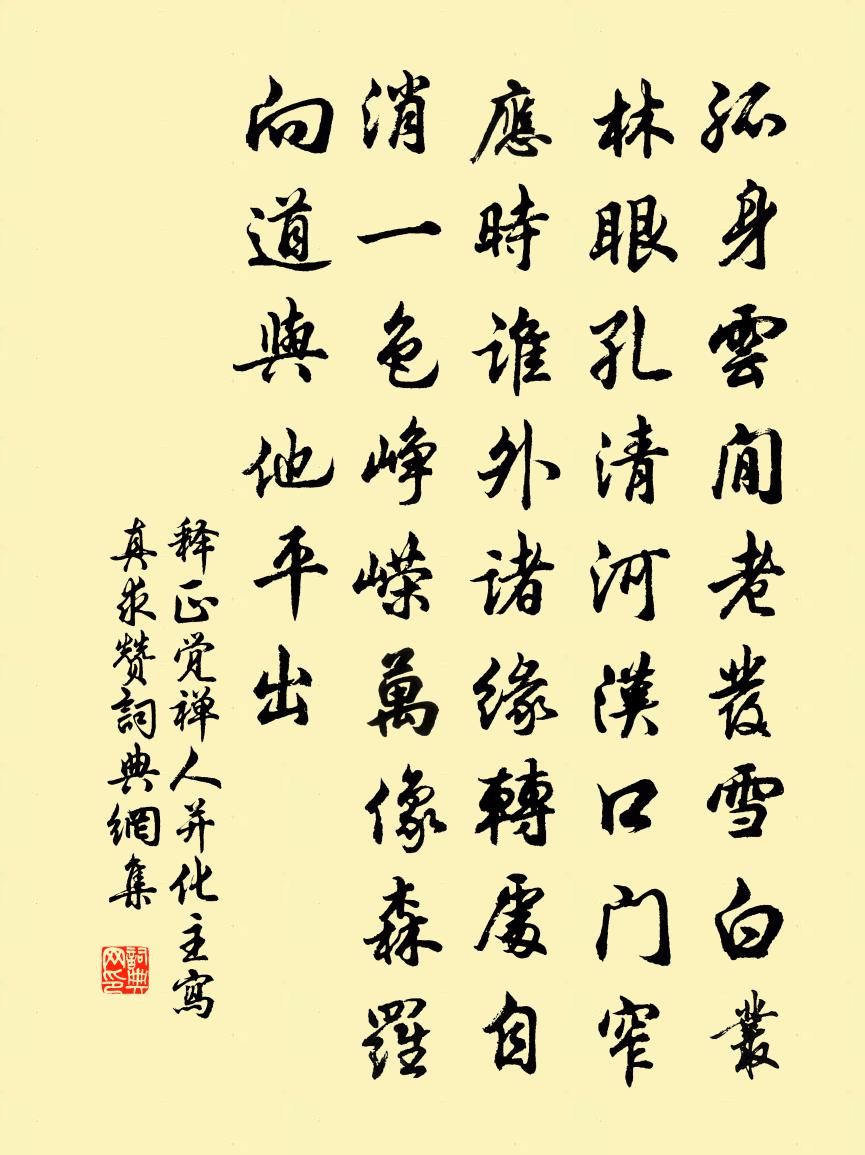 孤身雲閒老發雪白叢
林眼孔清河漢口門窄
應時誰外諸緣轉處自
消一色崢嶸萬像森羅
向道與他平出
释正觉禅人并化主寫
真求赞詞典網集
詞典网印